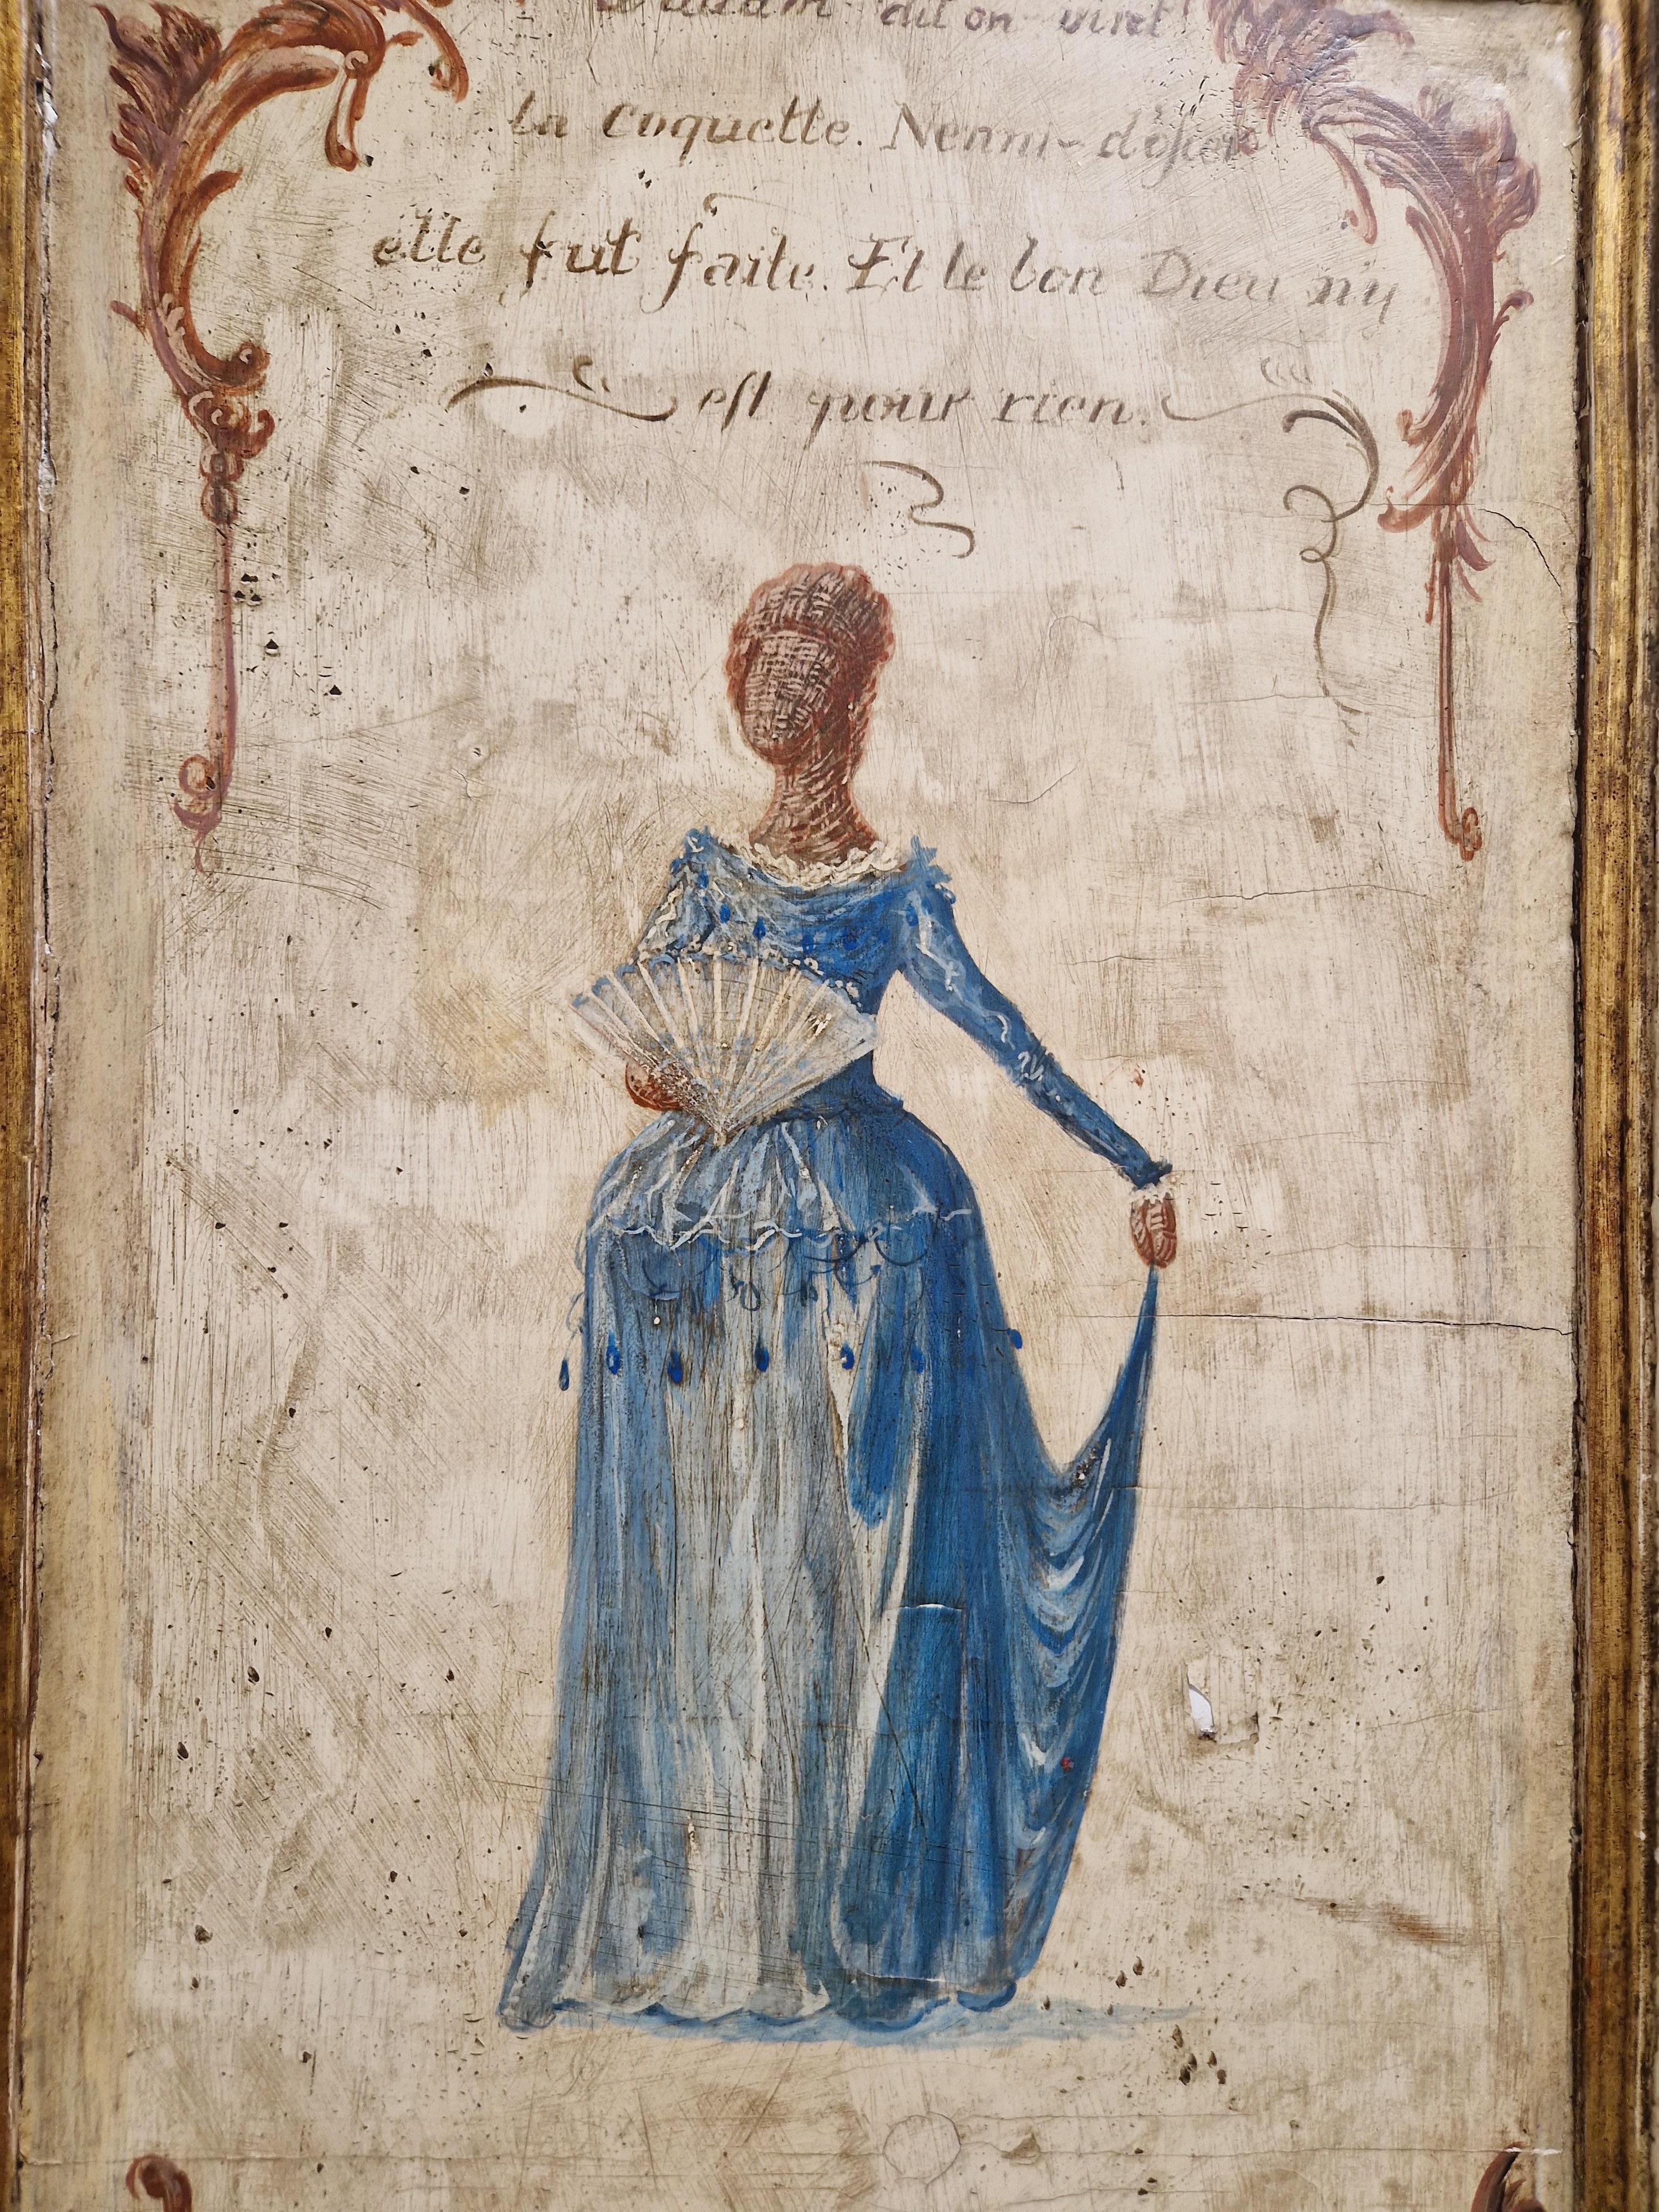 dit on vint
la coquette. Nenni- d'osier
elle fut faite. Et le bon Dieu n'y
est pour rien.